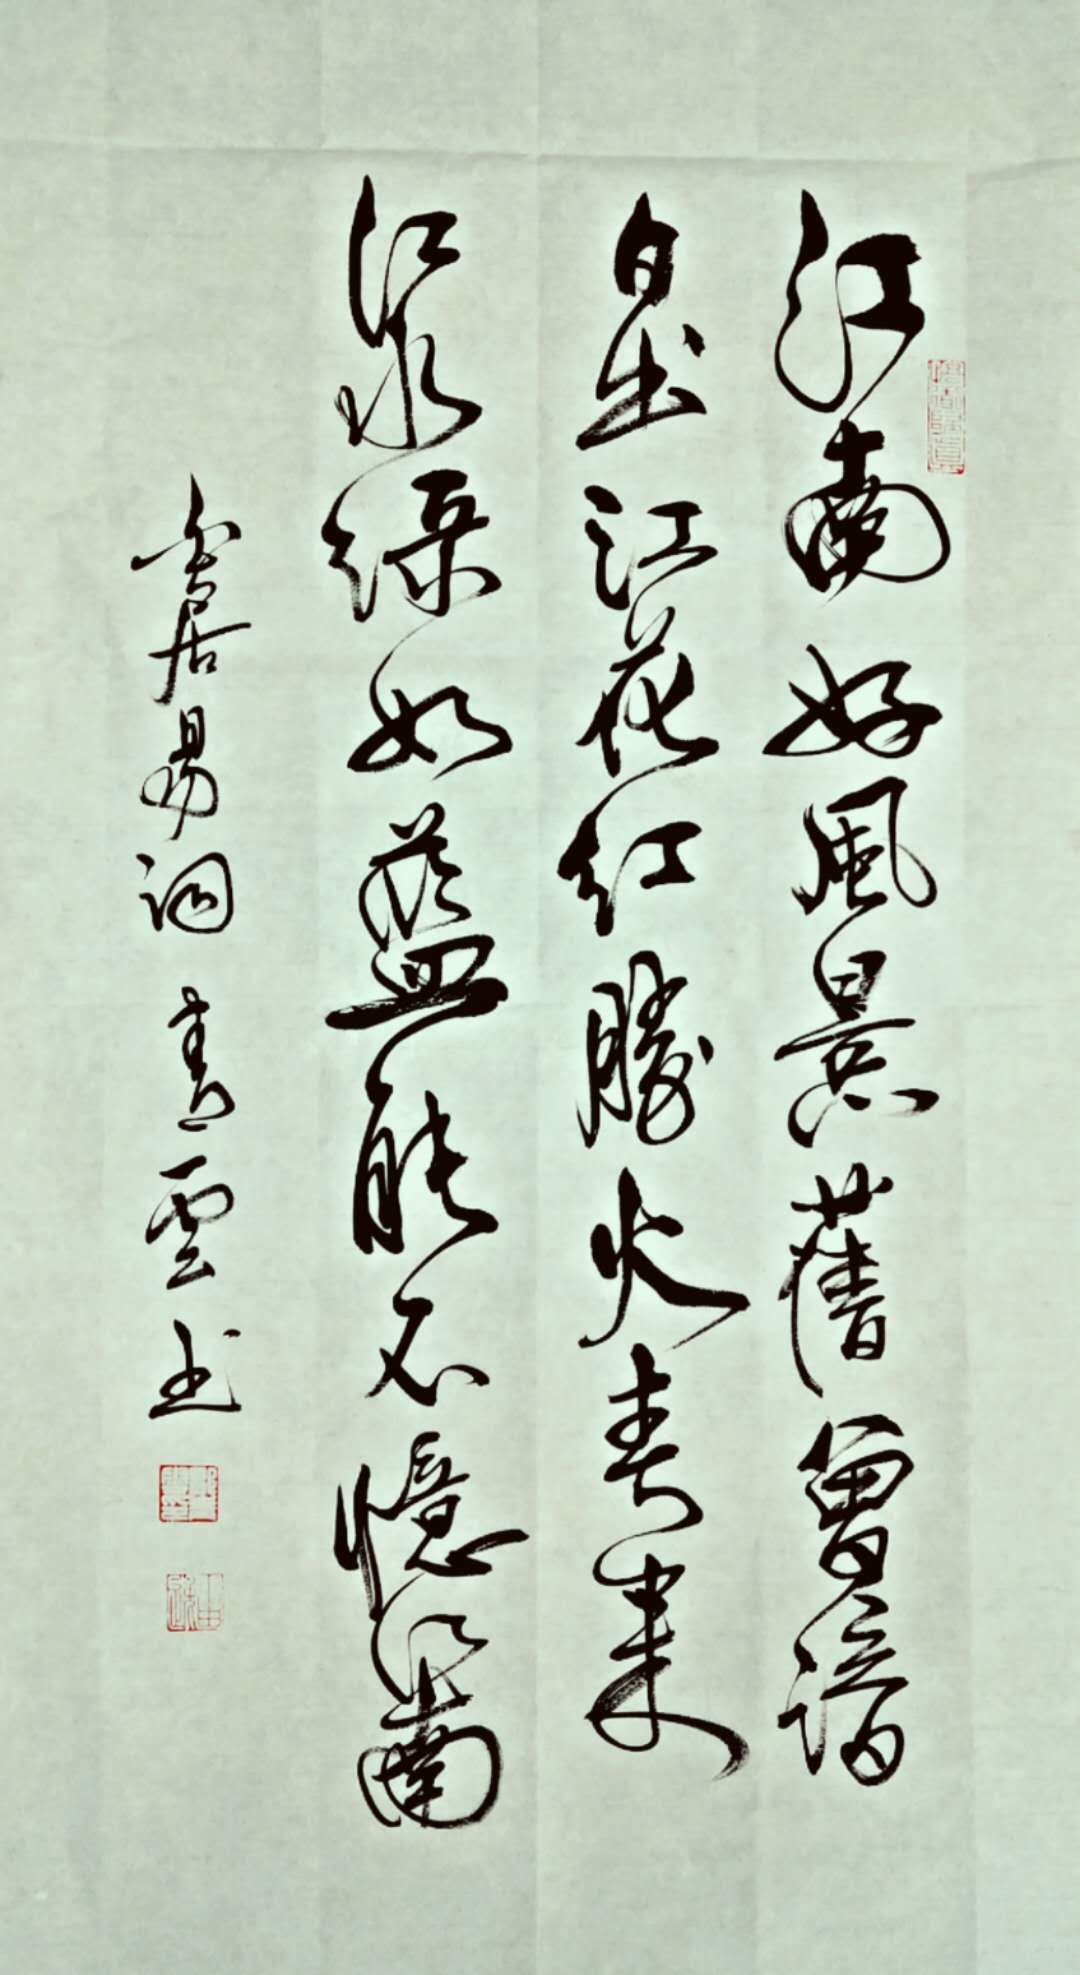 江南好風景舊曾諳
日出江花紅勝火春来
江水綠如藍能不憶江南
白居易詞 青雲书